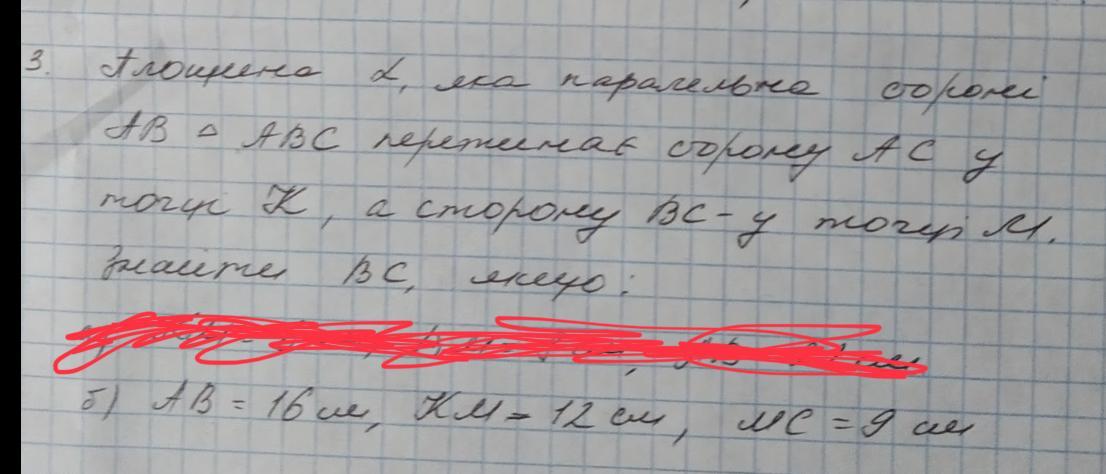 3. Площина α, яка паралельна стороні
AB △ ABC перетинає сторону AC у
точці K, а сторону BC - у точці M.
Знайти BC, якщо:
б) AB = 16 см, KM = 12 см, MC = 9 см